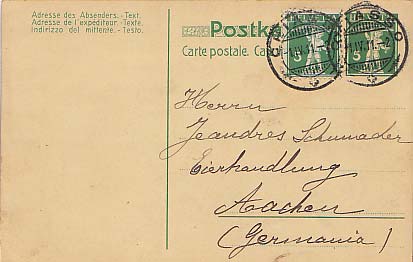 Adresse des Absenders. - Text.
Adresse de l'expéditeur. - Texte.
Indirizzo del mittente. - Testo.
Postk
Carte postale. Ca
CHIASSO
1.IV.11.-2
5
5
Herrn
Jeandres Schumacher
Eierhandlung
Aachen
(Germania)